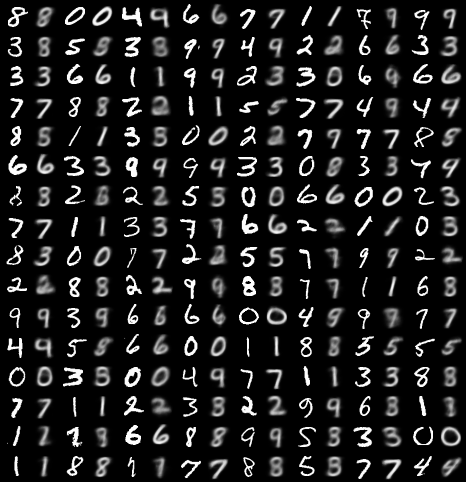 8 8 0 0 4 9 6 6 7 7 1 1 7 9 9 9
3 8 5 5 3 8 9 9 4 9 2 2 6 6 3 3
3 3 6 6 1 1 9 9 2 3 3 0 6 9 6 6
7 7 8 8 2 2 1 1 5 5 7 7 4 9 4 4
8 5 1 1 3 3 0 0 2 2 7 9 7 7 8 5
6 6 3 3 9 9 9 9 3 3 0 8 3 3 7 9
8 8 2 8 2 2 5 3 0 0 6 6 0 0 2 3
7 7 1 1 3 3 7 9 6 6 2 2 1 1 0 3
8 3 0 0 7 7 2 2 5 5 7 7 9 9 2 2
2 2 8 8 2 2 9 9 8 8 7 7 1 1 6 8
9 9 3 9 6 6 6 6 0 0 4 9 9 9 7 7
4 9 5 8 6 6 0 0 1 1 8 8 5 5 5 5
0 0 3 3 0 0 4 9 7 7 1 1 3 3 8 8
7 7 1 1 2 2 3 8 2 2 9 9 6 8 1 1
1 2 2 9 6 6 8 8 9 9 5 8 3 3 0 0
1 1 8 8 7 9 7 7 8 8 5 3 7 7 4 9